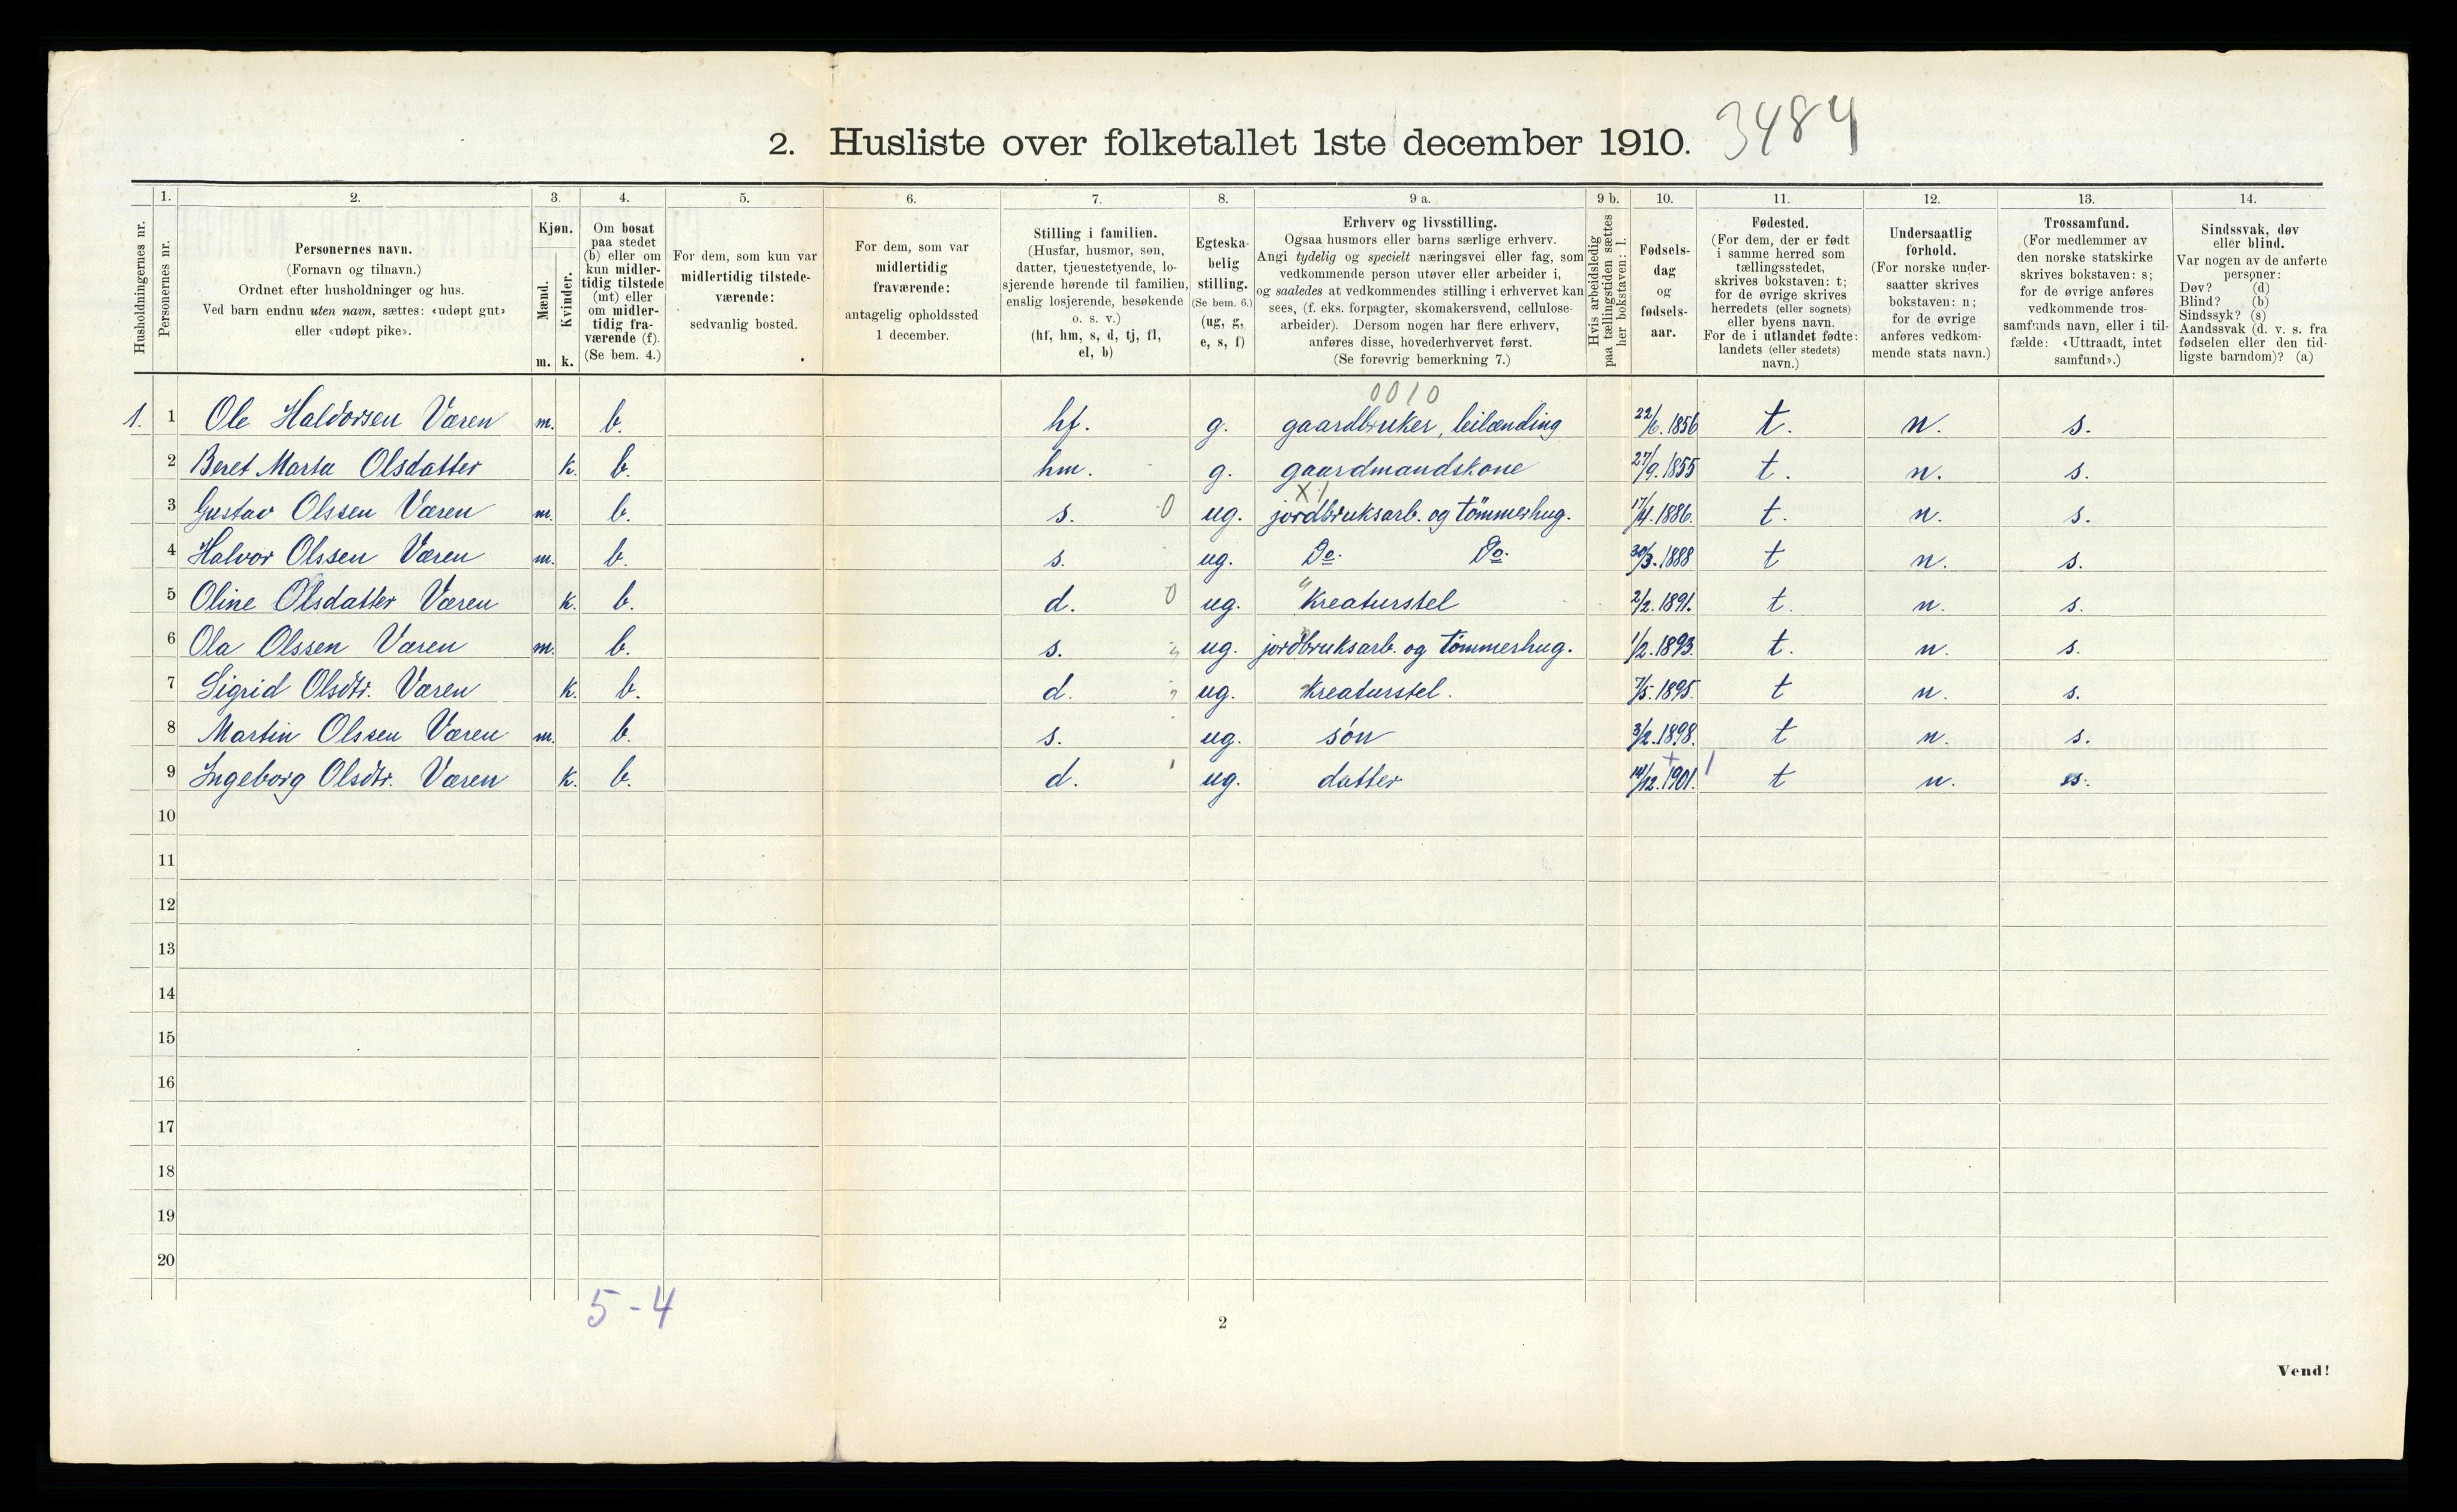 2. Husliste over folketallet 1ste december 1910. 3484
Husholdningernes nr.
1. Personernes nr.
2. Personernes navn.
(Fornavn og tilnavn.)
Ordnet efter husholdninger og hus.
Ved barn endnu uten navn, sættes: «udøpt gut»
eller «udøpt pike».
3. Kjøn.
Mænd. m.
Kvinder. k.
4. Om bosat
paa stedet
(b) eller om
kun midler-
tidig tilstede
(mt) eller
om midler-
tidig fra-
værende (f).
(Se bem. 4.)
5. For dem, som kun var
midlertidig tilstede-
værende:
sedvanlig bosted.
6. For dem, som var
midlertidig
fraværende:
antagelig opholdssted
1 december.
7. Stilling i familien.
(Husfar, husmor, søn,
datter, tjenestetyende, lo-
sjerende hørende til familien,
enslig losjerende, besøkende
o. s. v.)
(hf, hm, s, d, tj, fl,
el, b)
8. Egteska-
belig
stilling.
(Se bem. 6.)
(ug, g,
e, s, f)
9 a. Erhverv og livsstilling.
Ogsaa husmors eller barns særlige erhverv.
Angi tydelig og specielt næringsvei eller fag, som
vedkommende person utøver eller arbeider i,
og saaledes at vedkommendes stilling i erhvervet kan
sees, (f. eks. forpagter, skomakersvend, cellulose-
arbeider). Dersom nogen har flere erhverv,
anføres disse, hovederhvervet først.
(Se forøvrig bemerkning 7.)
9 b. Hvis arbeidsledig
paa tællingstiden sættes
her bokstaven: l.
10. Fødsels-
dag
og
fødsels-
aar.
11. Fødested.
(For dem, der er født
i samme herred som
tællingsstedet,
skrives bokstaven: t;
for de øvrige skrives
herredets (eller sognets)
eller byens navn.
For de i utlandet fødte:
landets (eller stedets)
navn.)
12. Undersaatlig
forhold.
(For norske under-
saatter skrives
bokstaven: n;
for de øvrige
anføres vedkom-
mende stats navn.)
13. Trossamfund.
(For medlemmer av
den norske statskirke
skrives bokstaven: s;
for de øvrige anføres
vedkommende tros-
samfunds navn, eller i til-
fælde: «Uttraadt, intet
samfund».)
14. Sindssvak, døv
eller blind.
Var nogen av de anførte
personer:
Døv? (d)
Blind? (b)
Sindssyk? (s)
Aandssvak (d. v. s. fra
fødselen eller den tid-
ligste barndom)? (a)
0010
1. 1 Ole Haldorsen Væren m. b. hf. g. gaardbruker, leilænding 22/6. 1856 t. n. s.
2 Beret Marta Olsdatter k. b. hm. g. gaardmandskone 27/9. 1855 t. n. s.
X1
3 Gustav Olssen Væren m. b. s. 0 ug. jordbruksarb. og tömmerhug. 17/4. 1886. t. n. s.
4 Halvor Olssen Væren m. b. s. ug. Do. Do. 30/3. 1888 t n. s.
5 Oline Olsdatter Væren k. b. d. 0 ug. " Kreaturstel 2/2. 1891. t. n. s.
6 Ola Olssen Væren m. b. s. ug. jordbruksarb. og tömmerhug. 1/2. 1893. t. n. s.
7 Sigrid Olsdtr. Væren k. b. d. ug. Kreaturstel. 7/5. 1895. t n. s.
8 Martin Olssen Væren m. b. s. ug. són 3/2. 1898. t n. s.
9 Ingeborg Olsdtr. Væren k. b. d. ug. datter 14/12. 1901. t n. s.
10
11
12
13
14
15
16
17
18
19
20
5-4
2
Vend!